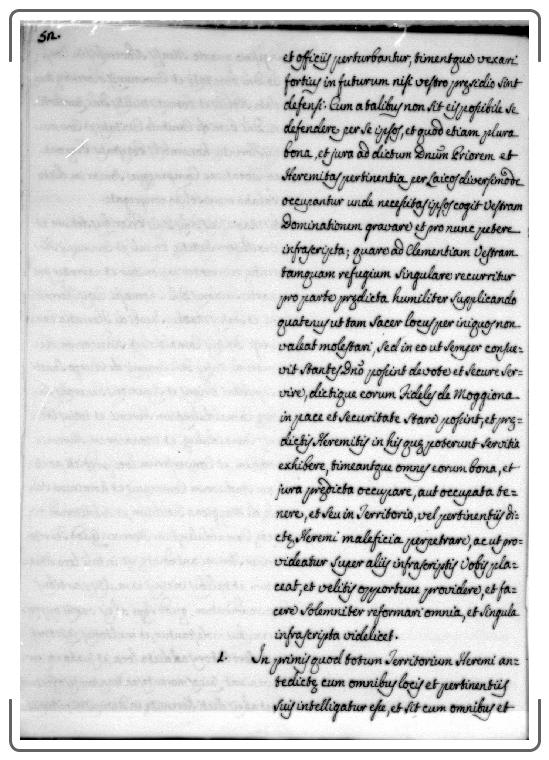 52.
et officijs perturbantur, timentque vexari
fortius in futurum nisi vestro pręsidio sint
defensi. Cum a talibus non sit eis possibile se
defendere per se ipsos, et quod etiam plura
bona, et jura ad dictum Dnum Priorem et
Heremitas pertinentia per Laicos diversimode
occupantur unde necessitas ipsos cogit Vestram
Dominationem gravare et pro nunc petere
infrascripta; quare ad Clementiam Vestram
tamquam refugium singulare recurritur
pro parte prędicta humiliter supplicando
quatenus ut tam Sacer locus per iniquos non
valeat molestari, sed in eo ut semper consue=
vit stantes Dno possint devote et secure ser=
vire, dictique eorum fideles de Moggiona
in pace et securitate stare possint, et prę=
dictis Heremitis in his quę poterunt servitia
exhibere, timeantque omnes eorum bona, et
jura prędicta occupare, aut occupata te=
nere, et seu in Territorio, vel pertinentijs di=
ctę Heremi maleficia perpetrare, ac ut pro=
videatur super alijs infrascriptis Vobis pla=
ceat, et velitis opportune providere, et fa=
cere solemniter reformari omnia, et singula
infrascripta videlicet.
1. In primis quod totum Territorium Heremi an=
tedictę cum omnibus locis et pertinentijs
suis intelligatur esse, et sit cum omnibus et